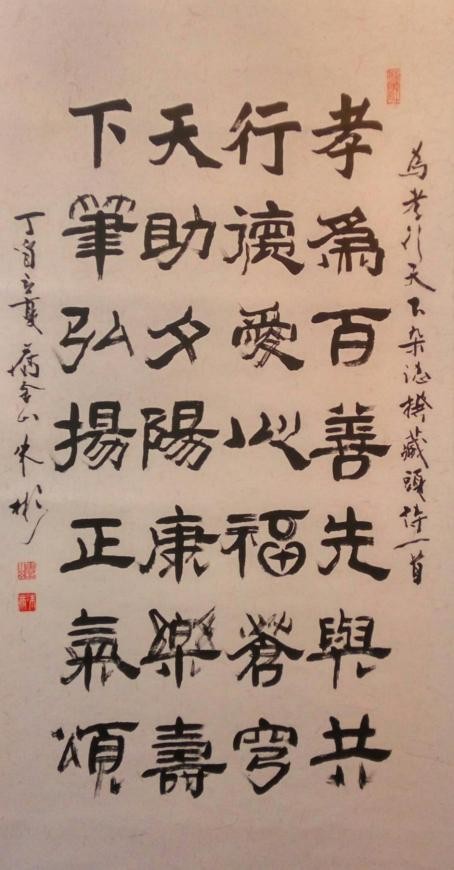 為孝行天下杂誌撰藏頭詩一首
孝為百善先與共
行德愛心福蒼穹
天助夕陽康樂壽
下筆弘揚正氣頌
丁酉立夏 金山 朱彬